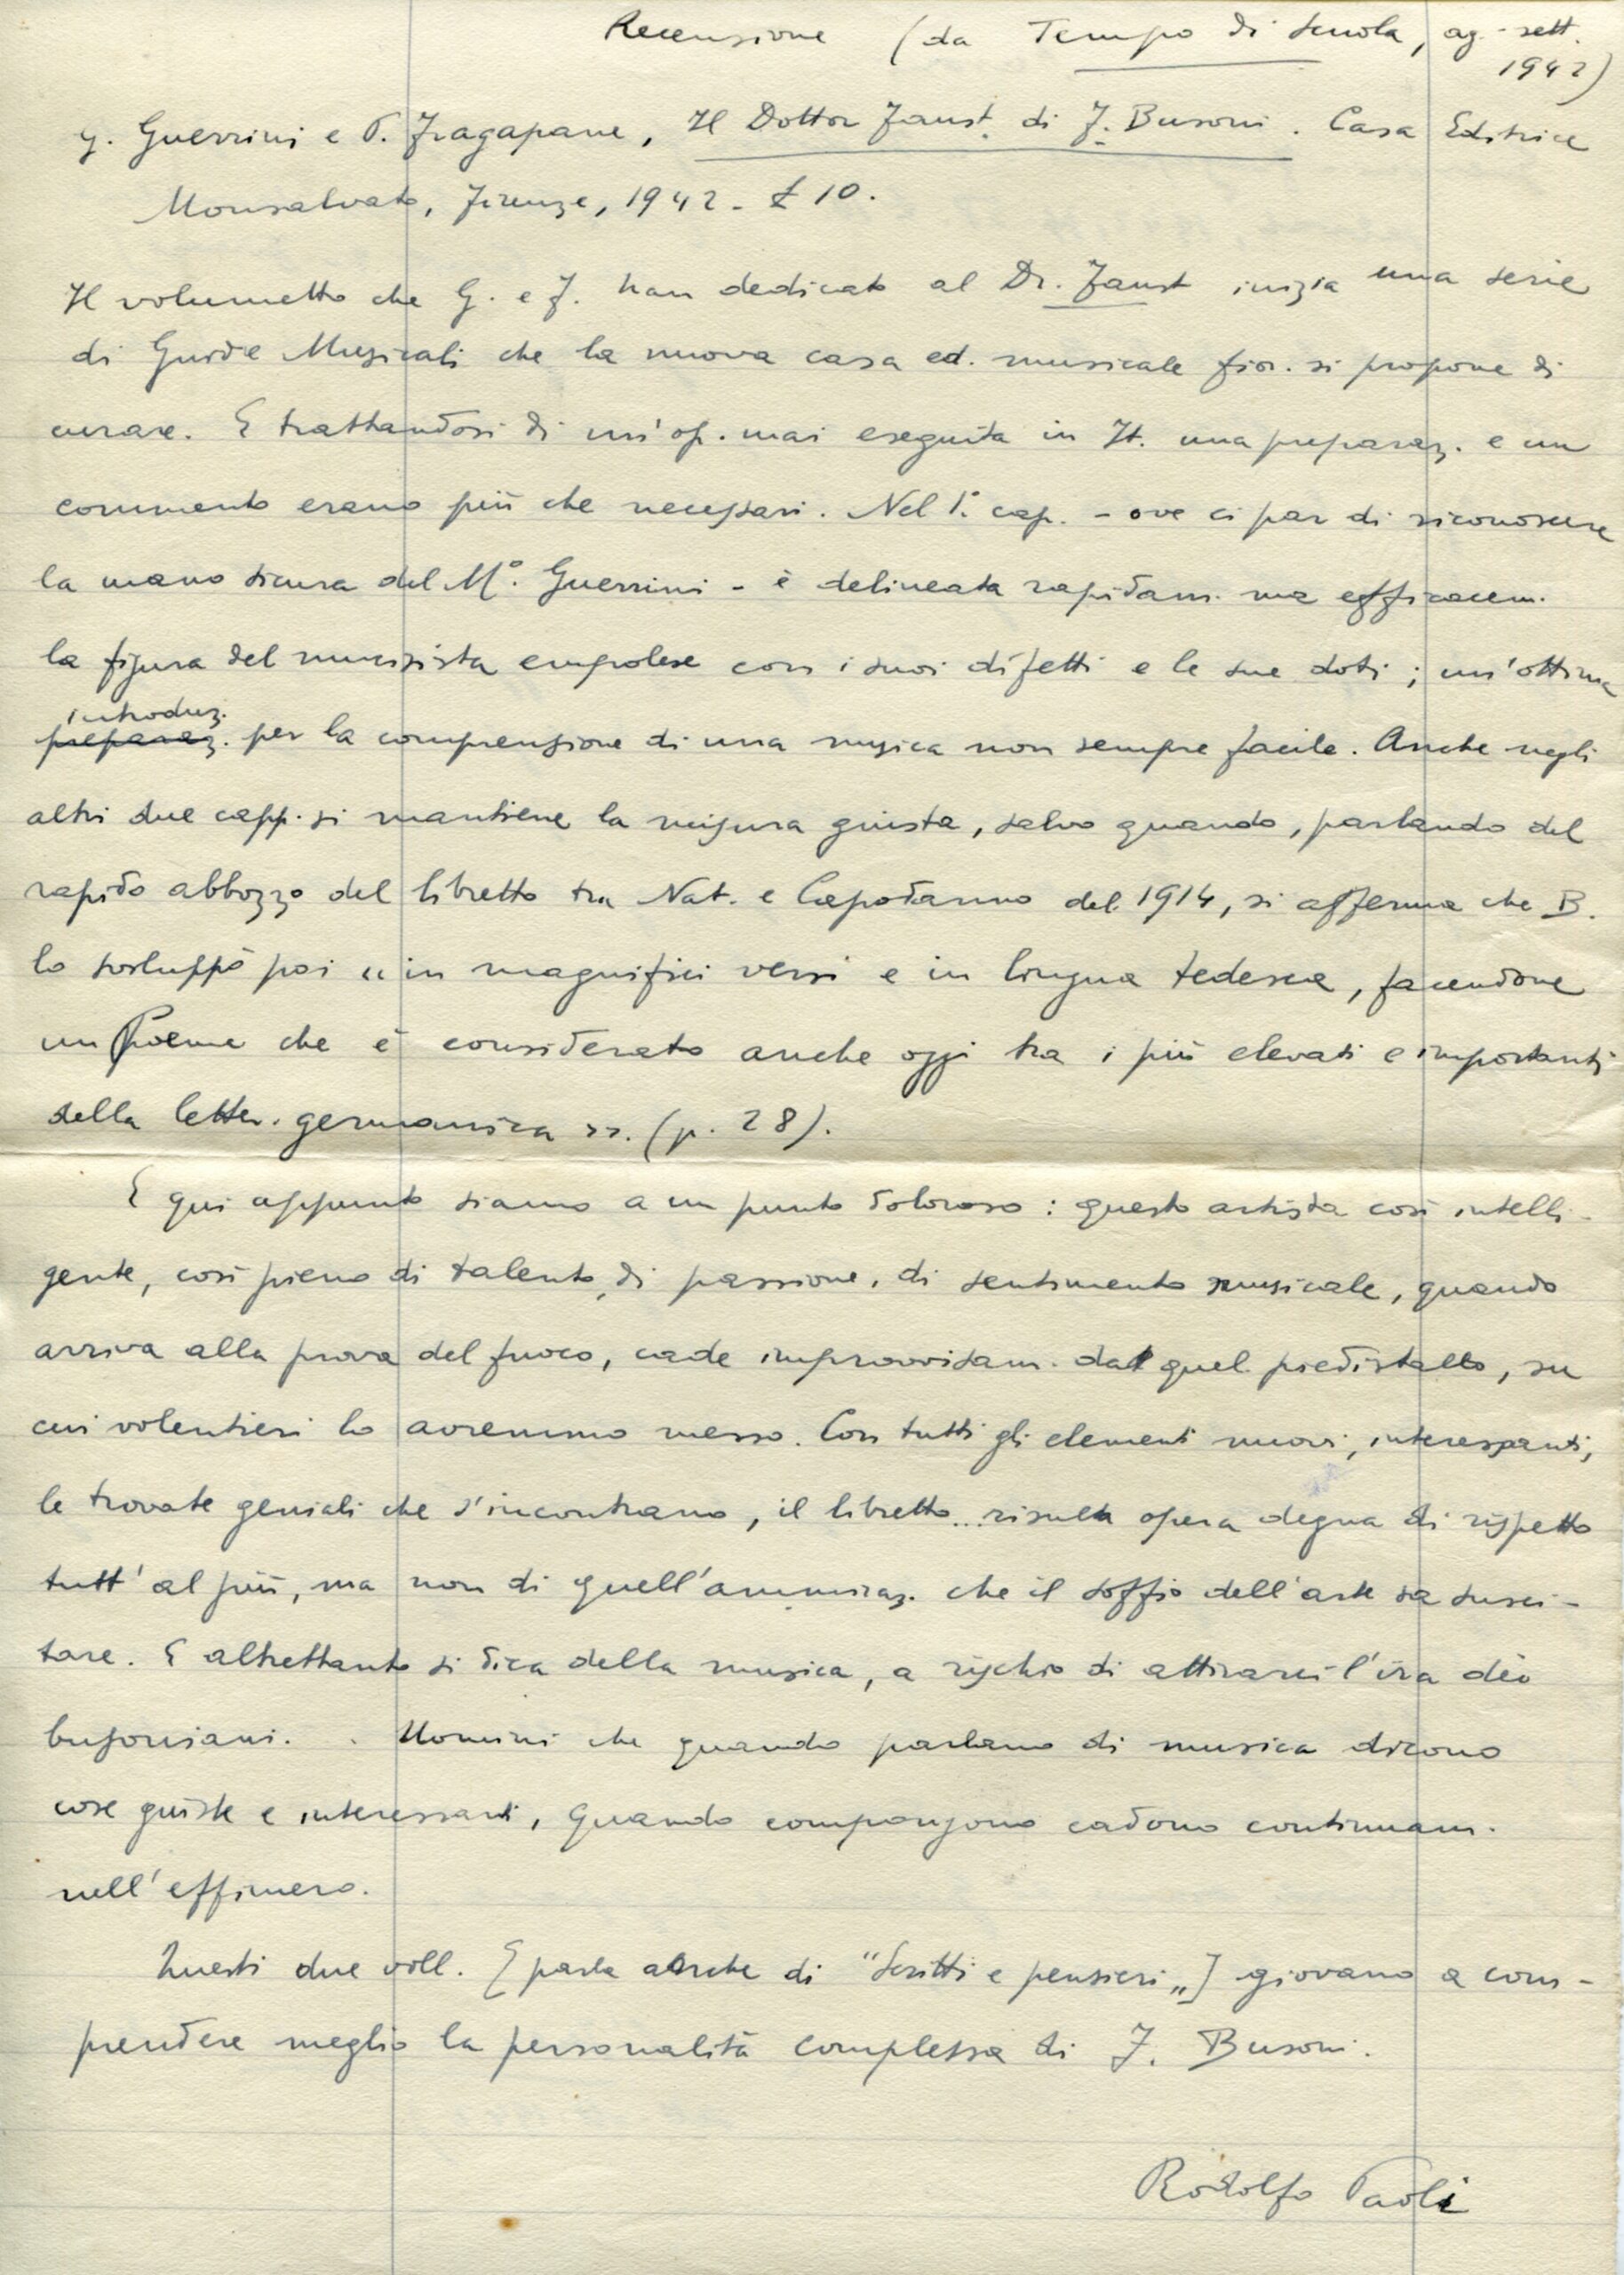 Recensione (da Tempo di Scuola, ag.-sett.
1942)
G. Guerrini e P. Fragapane, Il Dottor Faust di F. Busoni. Casa Editrice
Monsalvato, Firenze, 1942 - £ 10.
Il volumetto che G. e F. han dedicato al Dr. Faust inizia una serie
di Guide Musicali che la nuova casa ed. musicale fior. si propone di
curare. E trattandosi di un'op. mai eseguita in It. una preparaz. e un
commento erano più che necessari. Nel 1° cap. - ove ci par di riconoscere
la mano sicura del M°. Guerrini - è delineata rapidam. ma efficacem.
la figura del musicista empolese con i suoi difetti e le sue doti; un'ottima
introduz.
preparaz. per la comprensione di una musica non sempre facile. Anche negli
altri due capp. si mantiene la misura giusta, salvo quando, parlando del
rapido abbozzo del libretto tra Nat. e Capodanno del 1914, si afferma che B.
lo sviluppò poi "in magnifici versi e in lingua tedesca, facendone
un Poema che è considerato anche oggi tra i più elevati e importanti
della letter. germanica". (p. 28).
E qui appunto siamo a un punto doloroso: questo artista così intelli-
gente, così pieno di talento, di passione, di sentimento musicale, quando
arriva alla prova del fuoco, cade improvvisam. dal quel piedistallo, su
cui volentieri lo avremmo messo. Con tutti gli elementi nuovi, interessanti,
le trovate geniali che s'incontrano, il libretto...risulta opera degna di rispetto
tutt'al più, ma non di quell'ammiraz. che il soffio dell'arte sa susci-
tare. E altrettanto si dica della musica, a rischio di attirarci l'ira dei
busoniani. . Uomini che quando parlano di musica dicono
cose giuste e interessanti, quando compongono cadono continuam.
nell'effimero.
Questi due voll. [parla anche di "Scritti e pensieri"] giovano a com-
prendere meglio la personalità complessa di F. Busoni.
Rodolfo Paoli